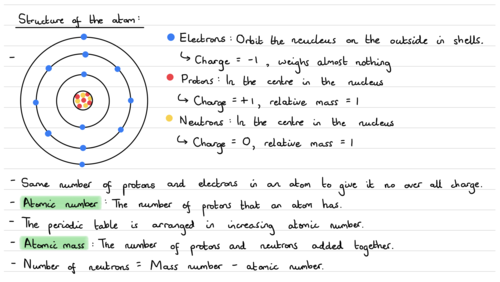 Structure of the atom:
Electrons: Orbit the neucleus on the outside in shells.
↳ Charge = -1, weighs almost nothing
-
Protons: In the centre in the nucleus
↳ Charge = +1, relative mass = 1
Neutrons: In the centre in the nucleus
↳ Charge = 0, relative mass = 1
- Same number of protons and electrons in an atom to give it no over all charge.
- Atomic number: The number of protons that an atom has.
- The periodic table is arranged in increasing atomic number.
- Atomic mass: The number of protons and neutrons added together.
- Number of neutrons = Mass number - atomic number.